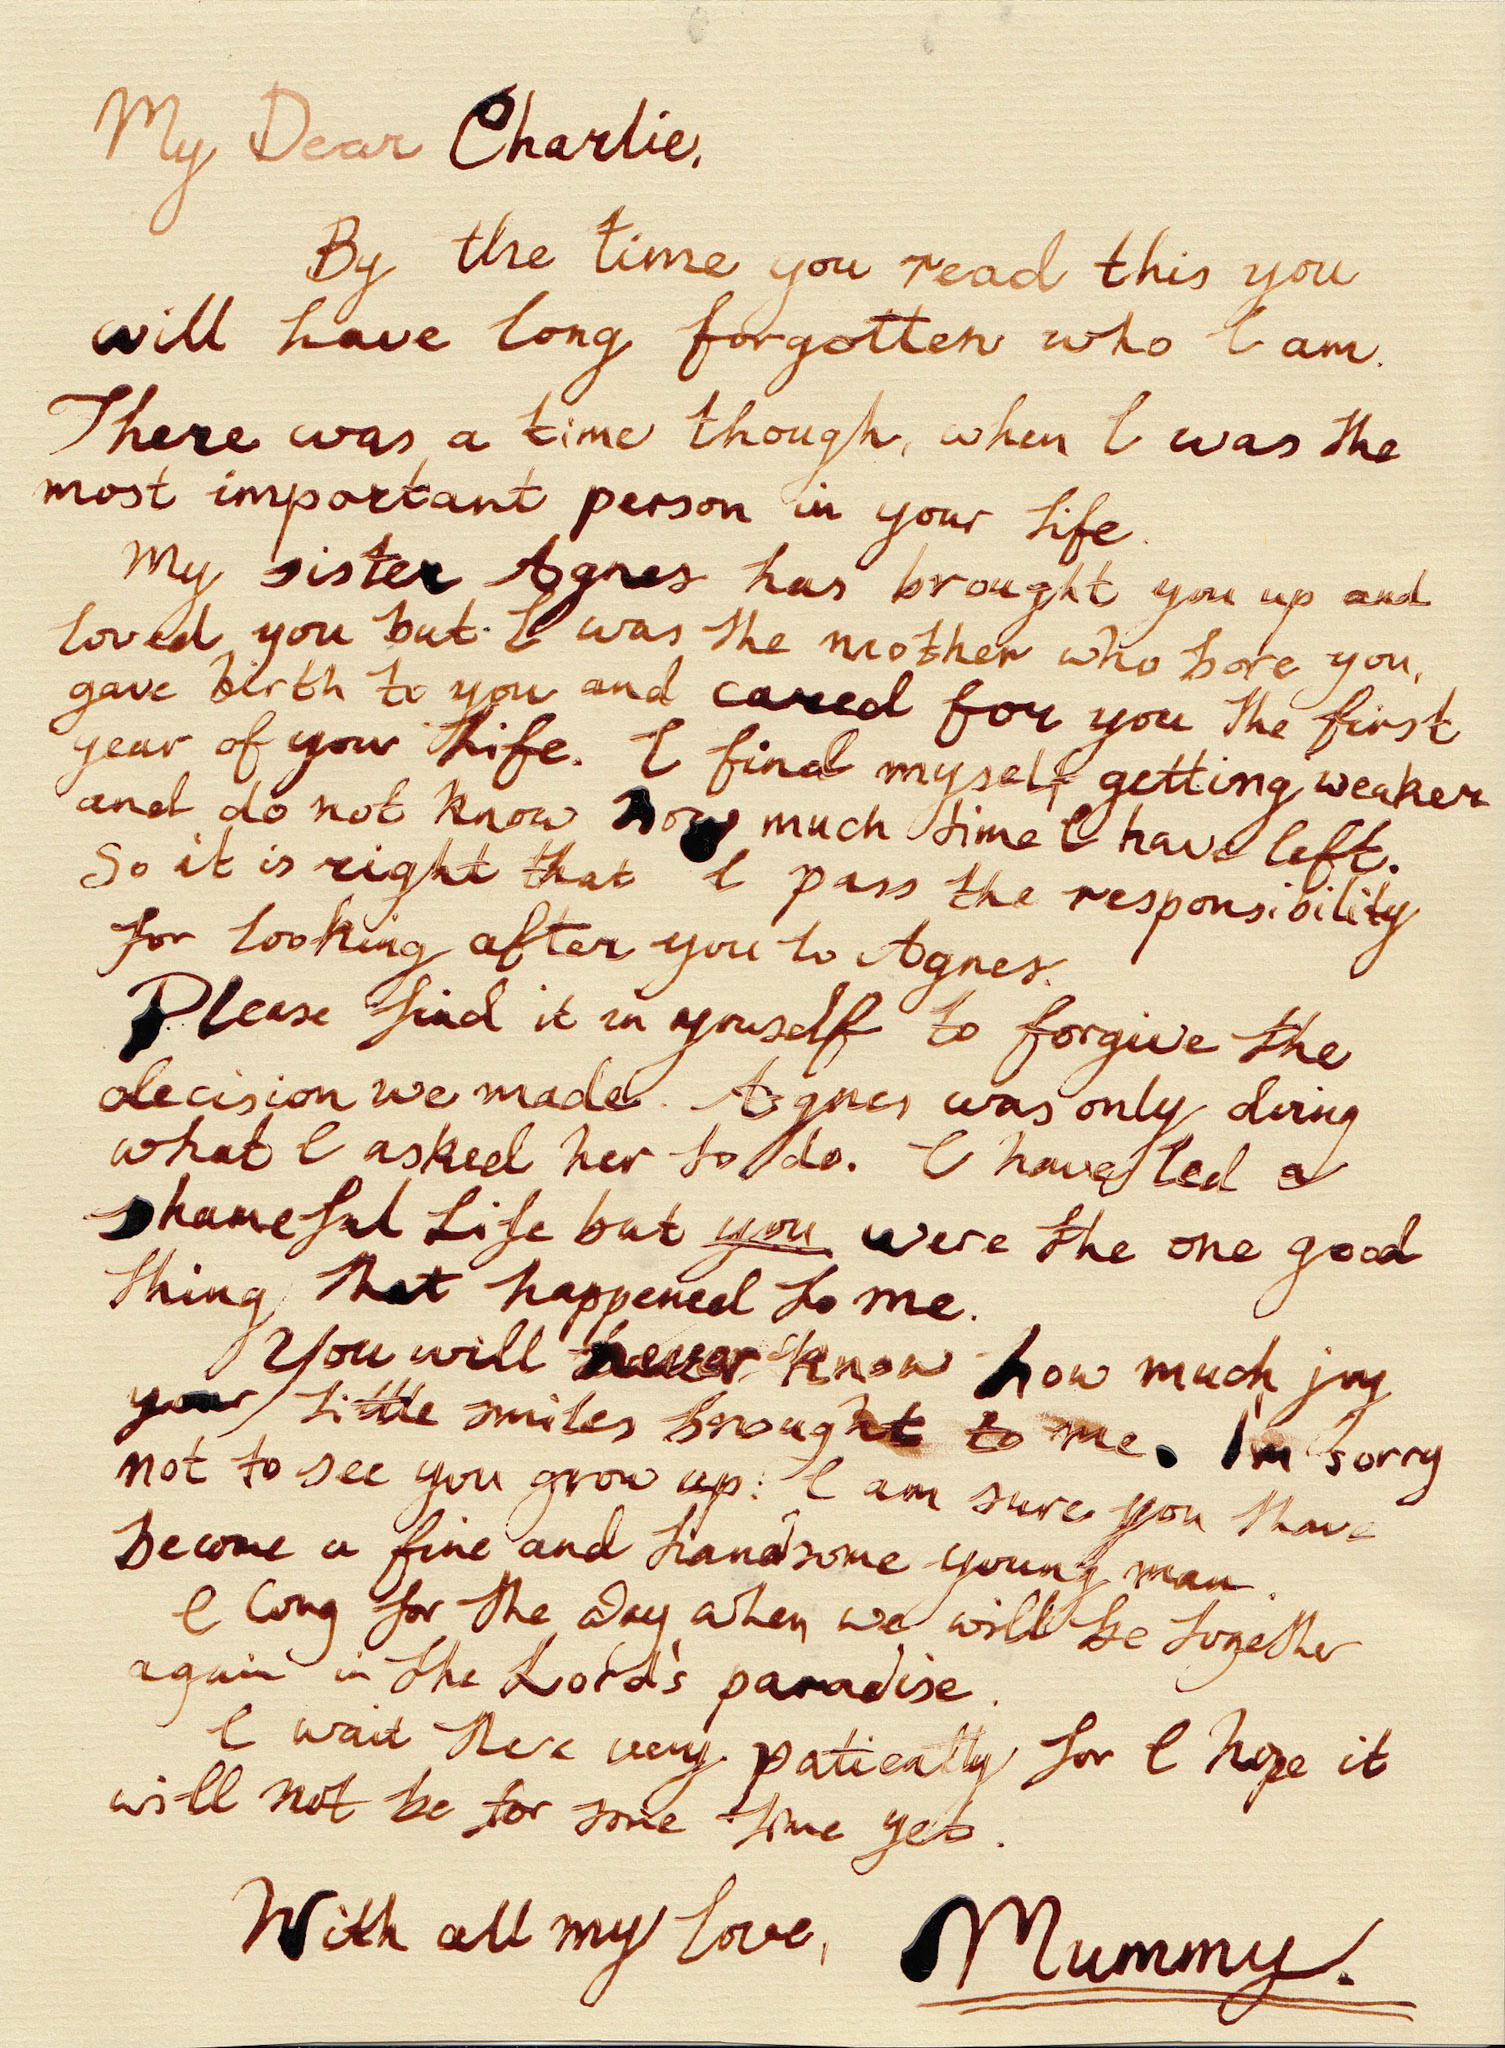 My Dear Charlie,
By the time you read this you
will have long forgotten who I am.
There was a time though, when I was the
most important person in your life.
My sister Agnes has brought you up and
loved you but I was the mother who bore you,
gave birth to you and cared for you the first
year of your life. I find myself getting weaker
and do not know how much time I have left.
So it is right that I pass the responsibility
for looking after you to Agnes.
Please find it in yourself to forgive the
decision we made. Agnes was only doing
what I asked her to do. I have led a
shameful life but you were the one good
thing that happened to me.
You will never know how much joy
your little smiles brought to me. I'm sorry
not to see you grow up: I am sure you have
become a fine and handsome young man.
I long for the day when we will be together
again in the Lord's paradise.
I wait there very patiently for I hope it
will not be for some time yet.
With all my love, Mummy.